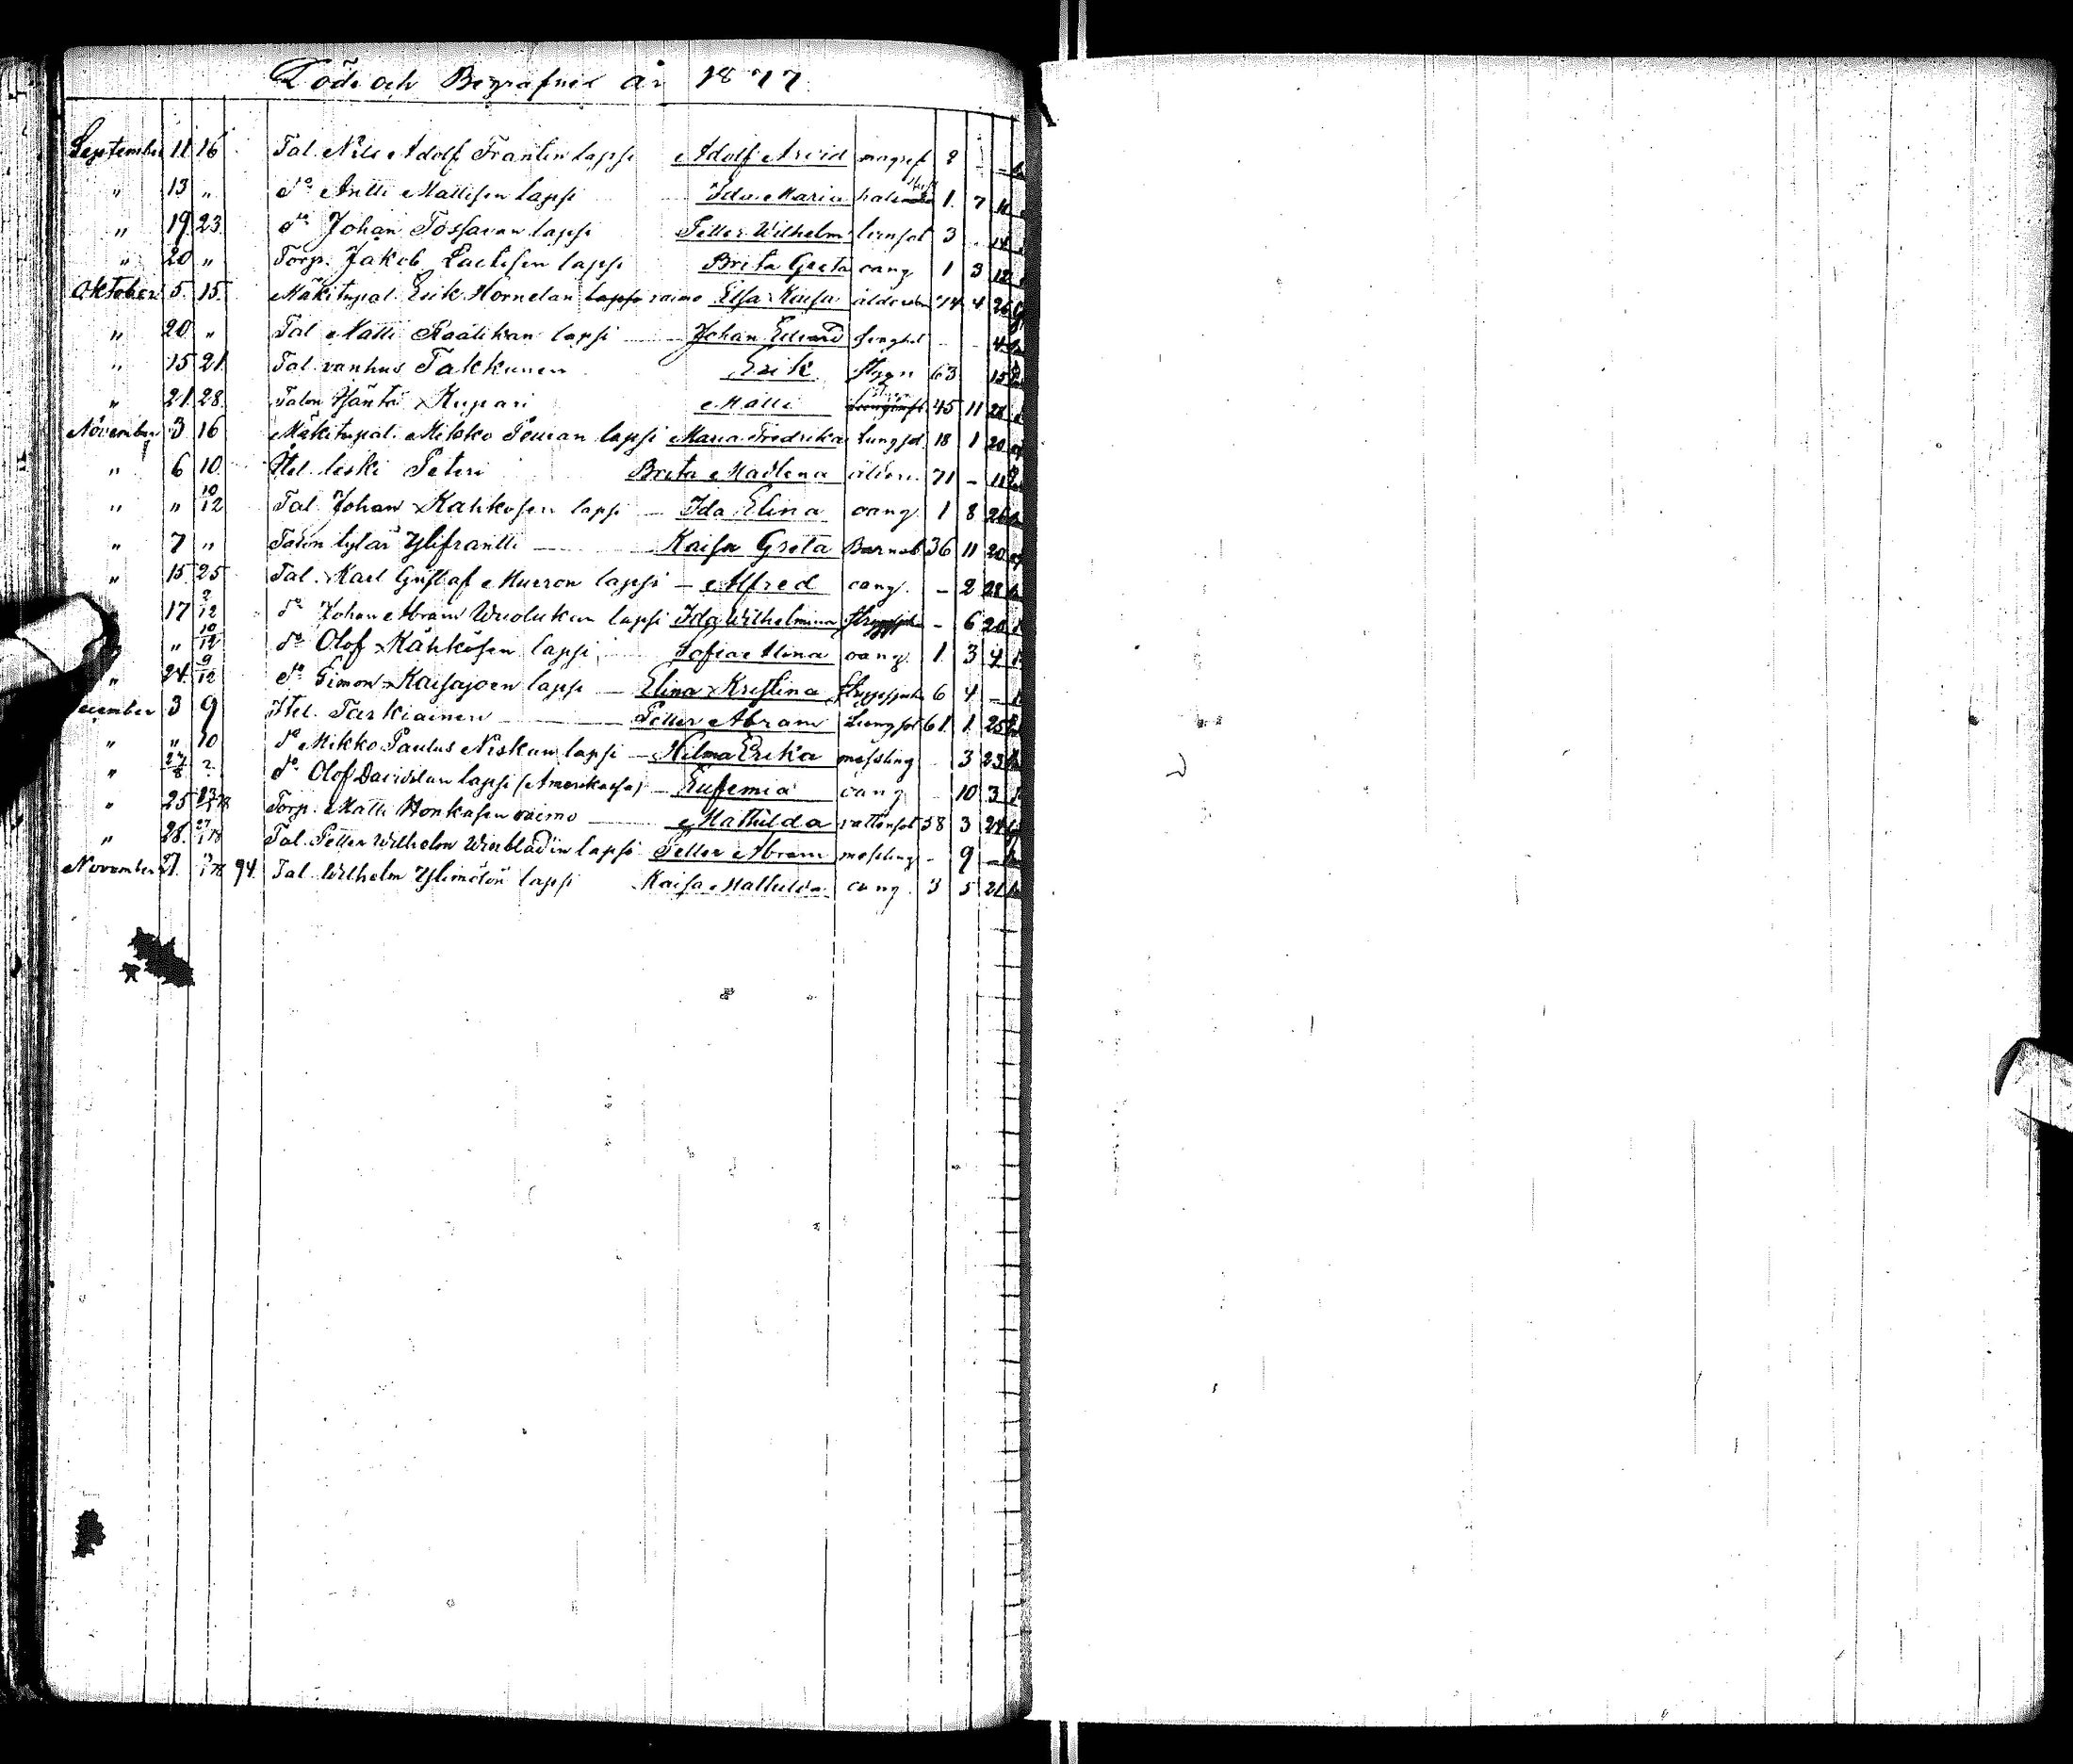 Död och Begrafned år 1877.
September 11 16 Tal. Nils Adolf Franlin lapsi Adolf Arvid magref 8
" 13 " do Antti Mattisen lapsi Ida Maria hals 1 7 11
" 19 23 do Johan Tossavan lapsi Petter Wilhelm lunsot 3 14
" 20 " Torp. Jakob lapsi Brita Greta oang 1 3 12
Oktober 5 15 Mäkitupal. Erik Hornelan lapsi vaimo Elsa Kaisa ålderdom 74 4 26
" 20 " Tal Matti Raatikan lapsi Johan Edvard lungsot - - 4
" 15 21 Tal. vanhus Takkunen Erik flygn 63 15
" 21 28 Talon Isäntä Kupari Matti 45 11 28
November 3 16 Mäkitupal. Mikko Peuran lapsi Maria Fredrika lungsot 18 1 20
" 6 10 Itel. leski Peteri Brita Madlena ålder. 71 - 11
" " 10/12 Tal Johan Kahkosen lapsi Ida Elina oang 1 8 26
" 7 " Talon tytär Ylifrantti Kaisa Greta Barnsb 36 11 20
" 15 25 Tal. Karl Gustaf Muuron lapsi Alfred oang. - 2 28
17 2/12 do Johan Abram Wuolukan lapsi Ida Wilhelmina - 6 20
" 10/12 do Olof Kähkösen lapsi Sofia Alina oang. 1 3 4
" 24 9/12 do Simon Kaisajoen lapsi Elina Kristina 6 4 -
ecember 3 9 Itel. Tarkiainen Petter Abram Lungsot 61 1 25
" " 10 do Mikko Paulus Niskan lapsi Hilma Erika messling 3 23
" 27/8 ? do Olof Davidilan lapsi (Amerikassa) Eufemia oang 10 3
" 25 Torp. Matti Honkasen vaimo Mathilda vattensot 58 3 24
" 28. 27/1 78 Tal. Petter Wilhelm Winbladin lapsi Petter Abram messling - 9 -
November 21. 94. Tal. Wilhelm Ylimötön lapsi Kaisa Mathilda oang. 3 5 21